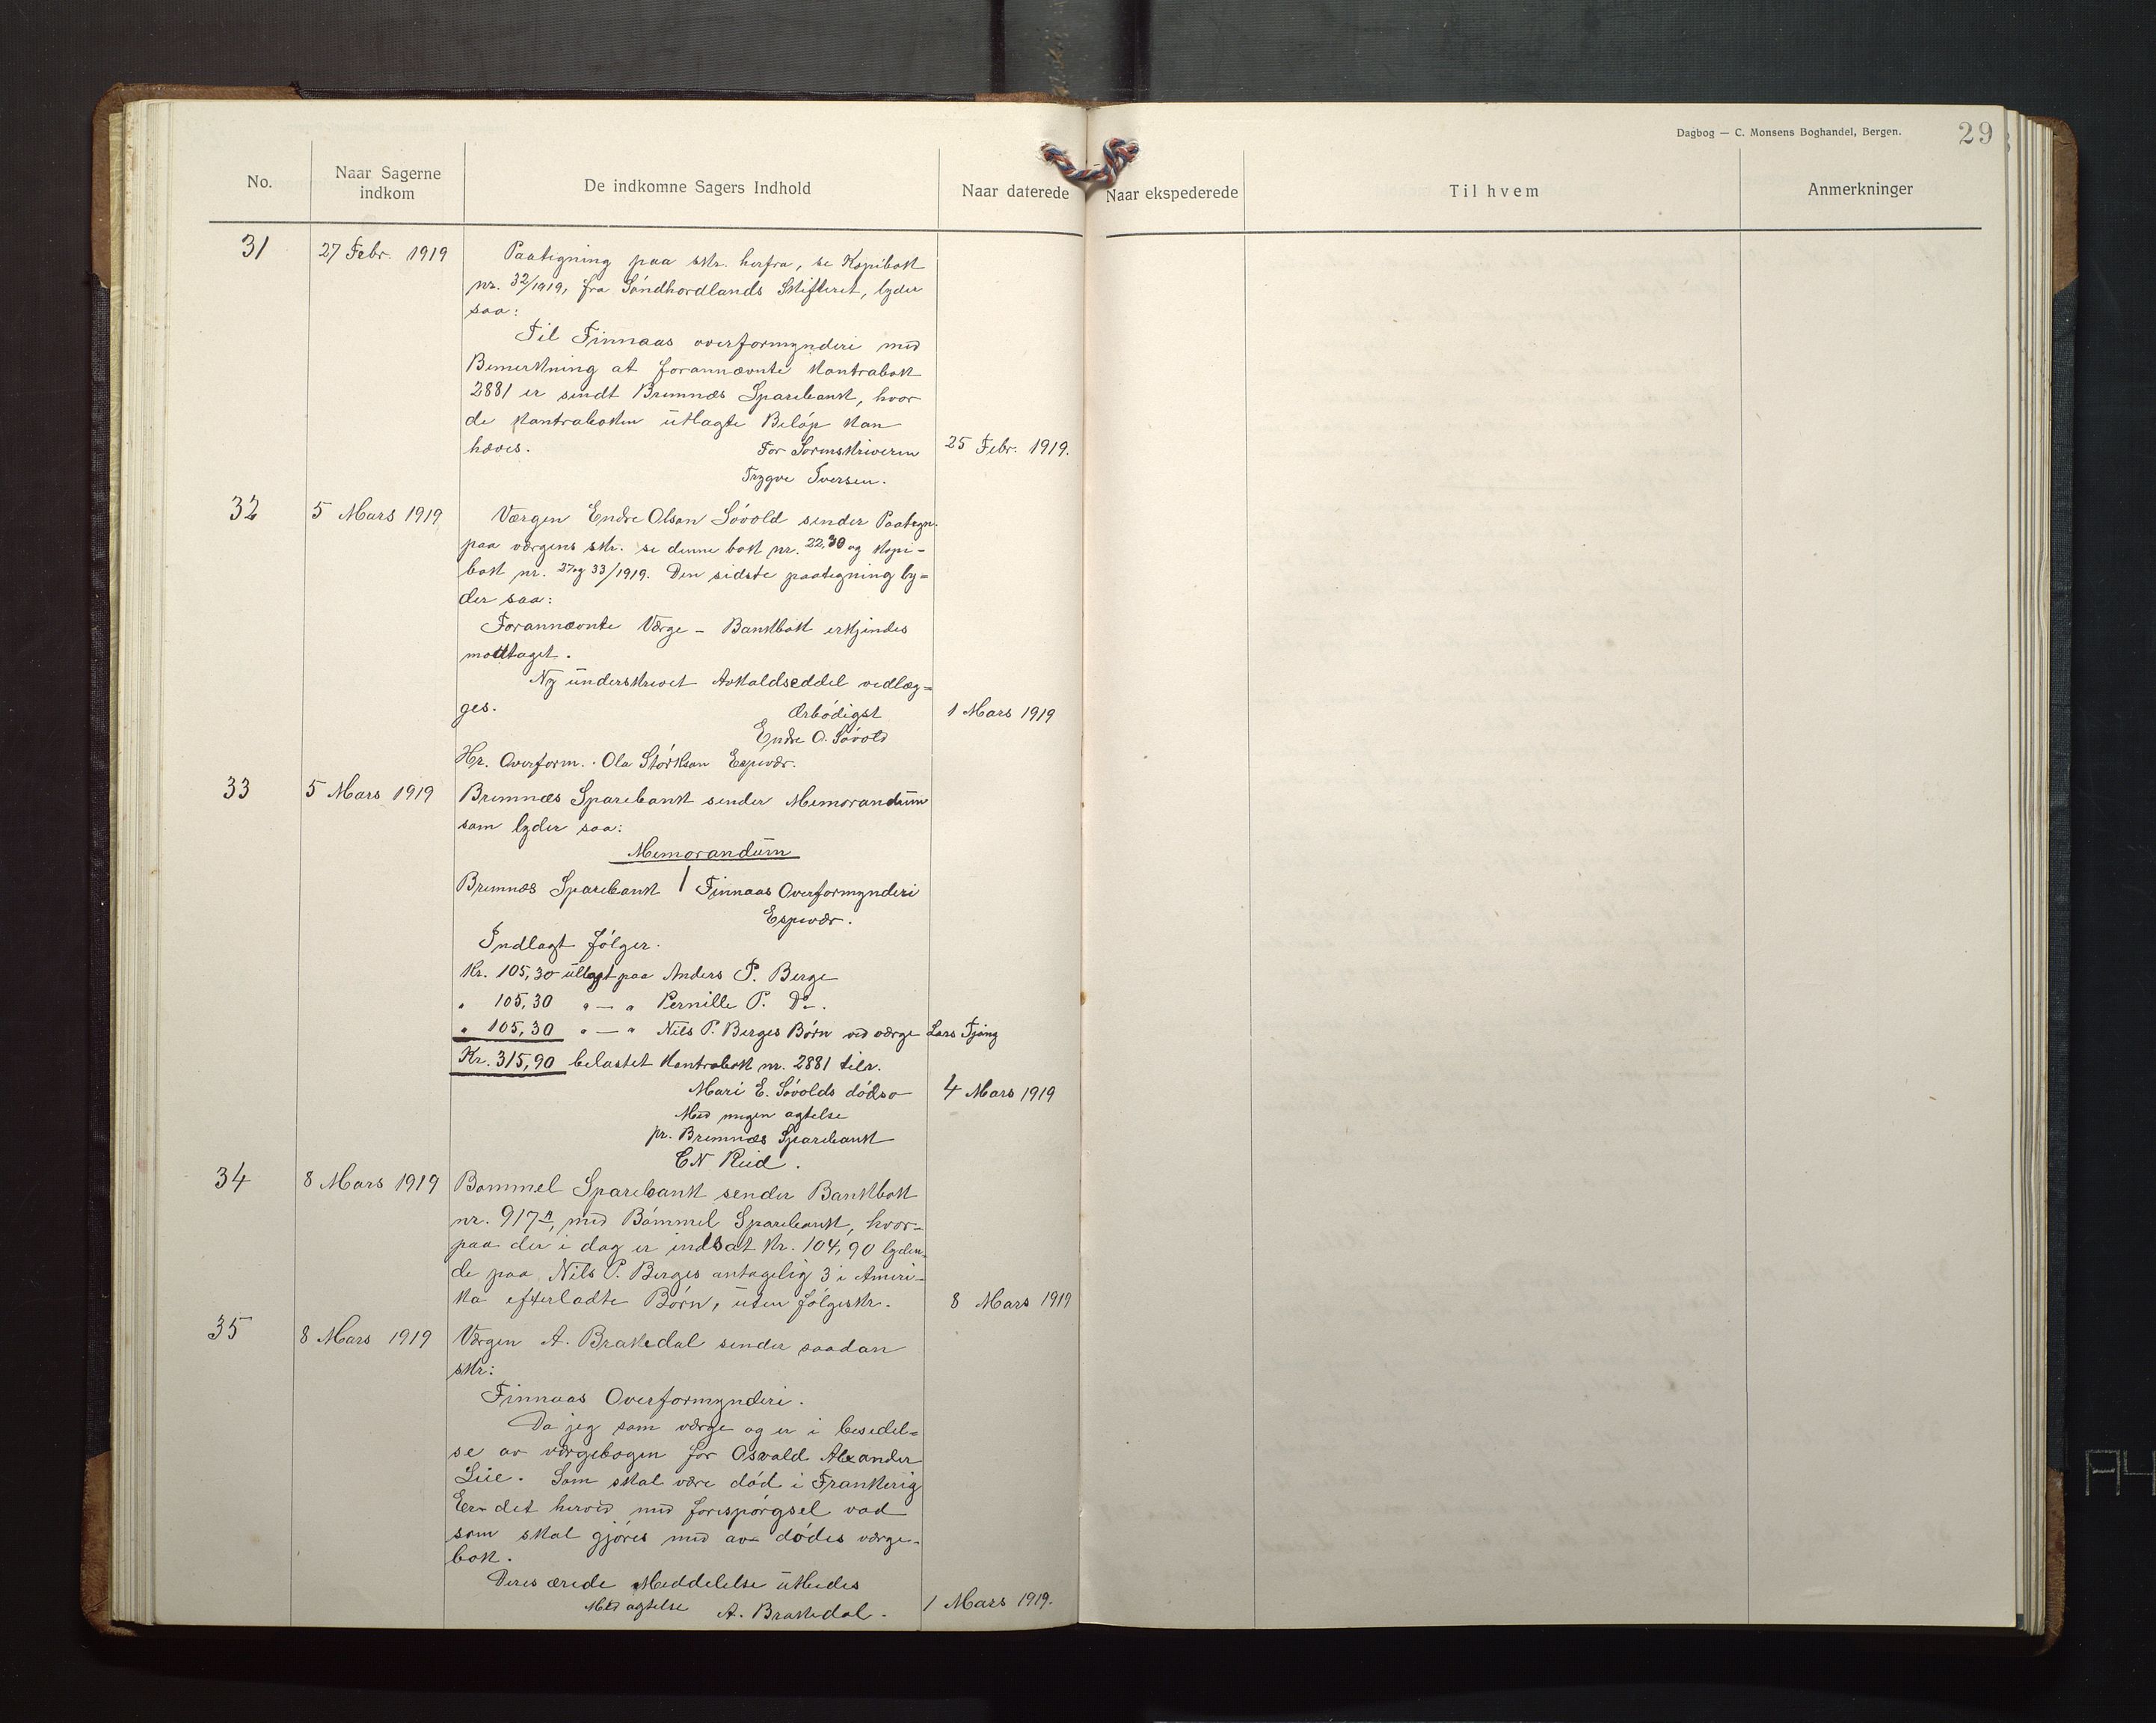 Dagbog — C. Monsens Boghandel, Bergen.
29
No.
Naar Sagerne
indkom
De indkomne Sagers Indhold
Naar daterede
Naar ekspederede
Til hvem
Anmerkninger
31
27 Febr. 1919
Paategning paa skr. herfra, se Kopibok
nr. 32/1919, fra Söndhordlands Skifteret, lyder
saa:
Til Finnaas overformynderi med
Bemerkning at forannævnte Kontrabok
2881 er sendt Bremnæs Sparebank, hvor
de Kontraboken utlagte Beløp kan
hæves.
For Sorenskriveren
25 Febr. 1919.
Trygve Iversen.
32
5 Mars 1919
Værgen Endre Olsen Søvold sender Paategn.
paa værgens skr. se denne bok nr. 22,30 og Kopi-
bok nr. 27 og 33/1919. Den sidste paategning ly=
der saa:
Forannævnte Værge - Bankbok erkjendes
mottaget.
Ny ünderskrevet Avkaldseddel vedlæg=
ges.
Ærbødigst
1 Mars 1919
Endre O. Søvold
Hr. Overform. Ola Størksen Espevær.
33
5 Mars 1919
Bremnæs Sparebank sender Memorandüm
som lyder saa:
Memorandüm
Bremnæs Sparebank / Finnaas Overformynderi
Espevær.
Indlagt følger.
Kr. 105,30 ütlagt paa Anders P. Berge
" 105,30 " — " Pernille P. Do
" 105,30 " — " Nils P. Berges Børn ved værge Lars Tjong
Kr. 315,90 belastet Kontrabok nr. 2881 tilr.
Mari E. Søvolds dødsbo
4 Mars 1919
Med megen agtelse
pr. Bremnæs Sparebank
34
8 Mars 1919
Bømmel Sparebank sender Bankbok
nr. 917A, med Bømmel Sparebank, hvor-
paa der i dag er indsat Kr. 104,90 lyden-
de paa Nils P. Berges antagelig 3 i Ameri-
ka efterladte Børn, üten følgeskr.
8 Mars 1919
35
8 Mars 1919
Værgen A. Brakedal sender saadan
skr:
Finnaas Overformynderi.
Da jeg som værge og er i besedel=
se av værgebogen for Osvald Alexander
Lie. Som skal være død i Frankerig
Er det herved med forespørgsel vad
som skal gjøres med av dødes værge-
bok.
Deres ærede Meddelelse ütbedes
Med agtelse A. Brakedal.
1 Mars 1919.